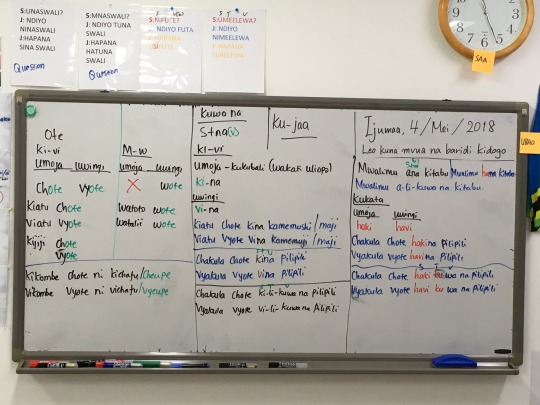 S:UNASWALI?
J: NDIYO
NINASWALI
J:HAPANA
SINA SWALI
Question
S:MNASWALI?
J: NDIYO TUNA
SWALI
J:HAPANA
HATUNA
SWALI
Question
S:NIFUTE?
J: NDIYO FUTA
J: HAPANA
USIFUTE
S T V
S:UMEELEWA?
J: NDIYO
NIMEELEWA
J: HAPANA
SIJAELEWA
SAA
UBAO
Ote
Ki-vi
umoja uwingi
Chote vyote
Kiatu Chote
Viatu Vyote
Kijiji chote
vyote
M-w
umoja uwingi
X wote
Watoto wote
watalii wote
Kikombe chote ni kichafu/cheupe
Vikombe Vyote ni vichafu/vyeupe
Kuwa na
S+na(v)
Ki-vi
ku-jaa
umoja - kukubali (wakati uliopo)
ki-na
uwingi
vi-na
Kiatu chote kina kamemushi/maji
Viatu Vyote Vina kamemushi/maji
Chakula Chote kina pilipili
Vyakula vyote vina pilipili
Chakula Chote ki-li-kuwa na pilipili
Vyakula vyote vi-li-kuwa na pilipili
Ijumaa, 4/Mei/2018
Leo kuna mvua na baridi kidogo
Mwalimu ana kitabu/Mwalimu hana kitabu
Mwalimu a-li-kuwa na kitabu.
Kukata
umoja uwingi
haki havi
Chakula Chote hakina Pilipili
Vyakula Vyote havina Pilipili
Chakula Chote haki ku wa na pilipili
Vyakula vyote havi ku wa na Pilipili